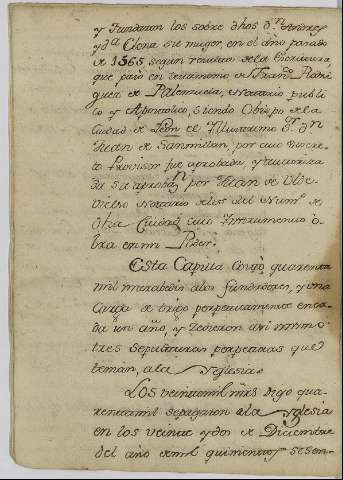 y fundaron los sobre dhos Dn Andres
y Da Elena su muger, en el año pasado
de 1565, segun resulta de la Escritura,
que pasó en testimonio de Franco Rodri
guez de Palenzuela, Notario publi
co y Apostolico, siendo Obispo de la
Ciudad de Leon el Illustrisimo Sr. Dn
Juan de Sanmillan, por cuio Discre
to Provisor fue aprobada, y autoriza
da su aprobaon por Juan de
Notario del Numo de
dha Ciudad, cuio Instrumento o
bra en mi Poder.
Esta Capilla Costó quarenta
mil maravedis a los fundadores, y una
Carga de trigo perpetuamente en ca
da un año, y tubieron asi mismo
tres sepulturas perpetuas que
tenian, a la Yglesia
Los veintemil mrs digo qua
rentamil se pagaron a la Yglesia
en los veinte y dos de Diciembre
del año de mil quinientos sesen